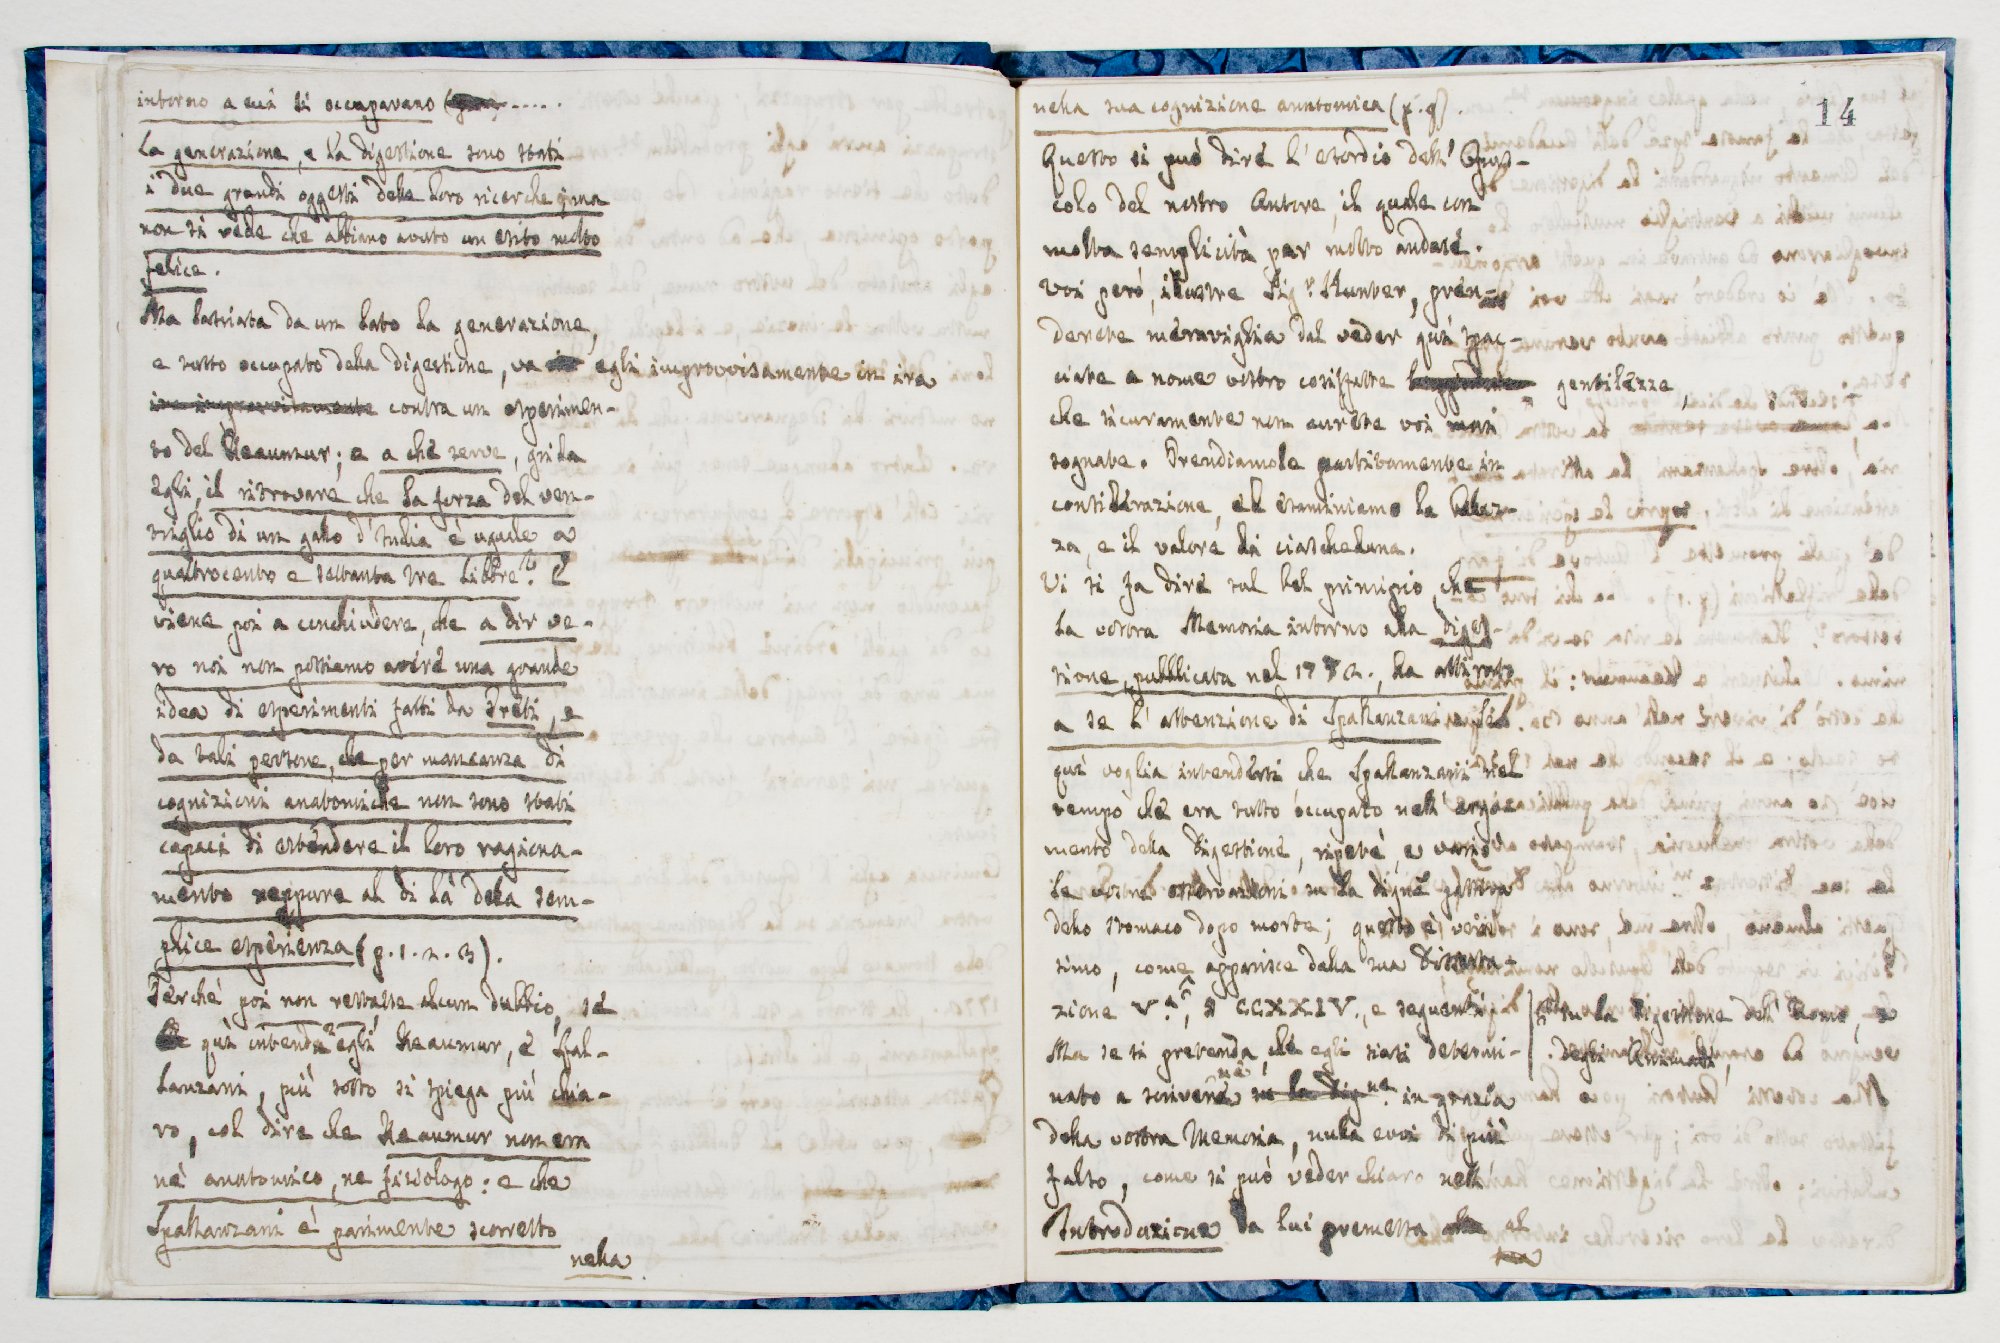 intorno a cui si occupavano
La generazione, e la digestione sono stati
i due grandi oggetti delle loro ricerche; ma
non si vede che abbiano avuto un esito molto
felice.
Ma lasciata da un lato la generazione,
e tutto occupato della digestione, va egli improvvisamente in ira
ira improvvisamente contra un esperimen-
to del Reaumur; e a che serve, grida
egli, il ritrovare che la forza del ven-
triglio di un gallo d'India è uguale a
quattrocento e settanta tre libbre? E
viene poi a conchiudere, che a dir ve-
ro noi non possiamo avere una grande
idea di esperimenti fatti da Preti, e
da tali persone, che per mancanza di
cognizioni anatomiche non sono stati
capaci di estendere il loro ragiona-
mento neppure al di là della sem-
plice esperienza (p. 1. 2. 3).
Perchè poi non restasse alcun dubbio, se
quì intenda egli Reaumur, e Spal-
lanzani, più sotto si spiega più chia-
ro, col dire che Reaumur non era
nè anatomico, ne fisiologo: e che
Spallanzani è parimente scorretto
nella
14
nella sua cognizione anatomica (p. 9).
Questo si può dire l'esordio dell' Opus-
colo del nostro Autore, il quale con
molta semplicità per molto andare.
Voi però, illustre Sig.r Hunter, pren-
derete meraviglia dal veder quì spac-
ciate a nome vostro cosiffatte gentilezze,
che sicuramente non avrete voi mai
sognate. Prendiamole partitamente in
considerazione, ed esaminiamo la
za, e il valore di ciascheduna.
Vi si fa dire sul bel principio, che
la vostra Memoria intorno alla diges-
tione, pubblicata nel 1772., ha attirato
a se l'attenzione di Spallanzani
quì voglia intendersi che Spallanzani nel
tempo che era tutto occupato nell' argo-
mento della digestione, ripetè, e variò
le vostre osservazioni su la digne
dello stomaco dopo morte; questo è veris-
simo, come apparisce dalla sua Disserta-
zione V.a, § CCXXIV., e seguenti.
su la Digestione dell' Uomo, e
degli Animali,
Ma se si pretenda, che egli siasi determi-
nato a scriverne su la dig.ne in grazia
della vostra Memoria, nulla evvi di più
falso, come si può veder chiaro nell'
Introduzione da lui premessa alla al